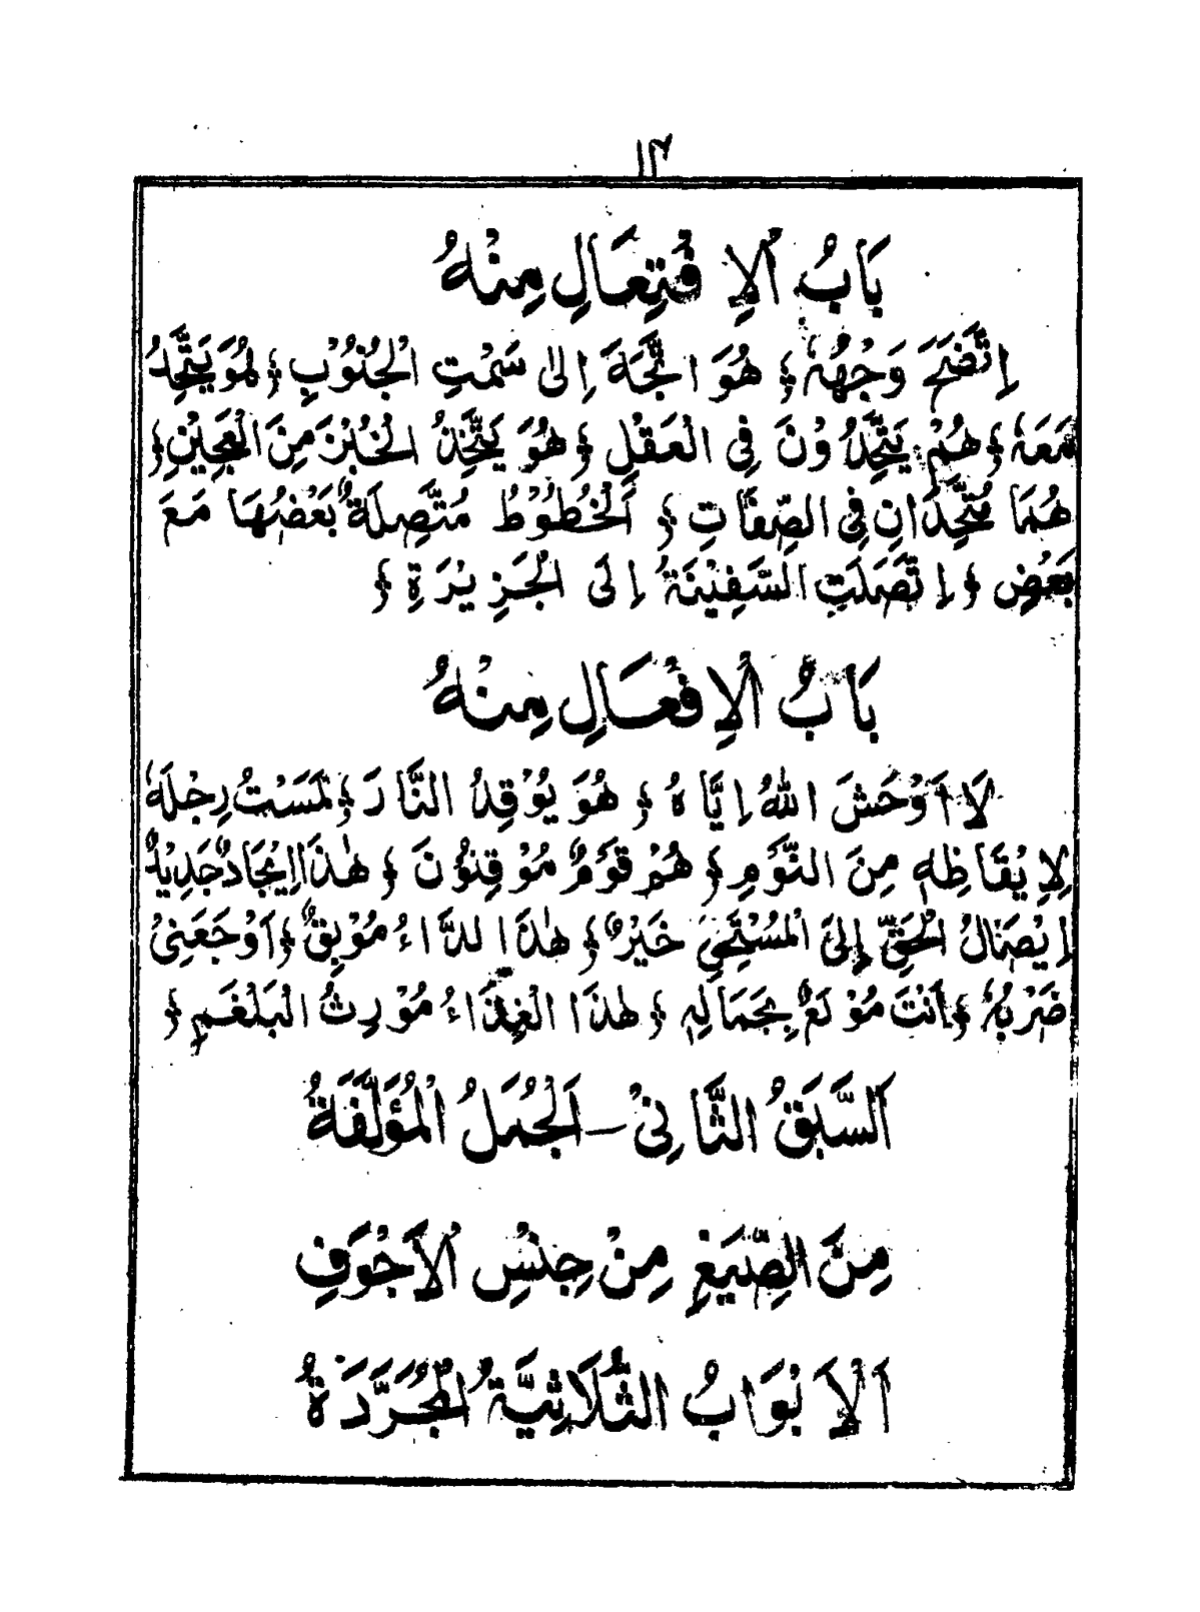 ١٣
بَابُ الْاِفْتِعَالِ مِنْهُ
اِتَّضَحَ وَجْهُهٗ ﴾ هُوَ اتَّجَهَ اِلٰى سَمْتِ الْجُنُوْبِ ﴾ هُوَ يَتَّحِدُ
مَعَهٗ ﴾ هُمْ يَتَّحِدُوْنَ فِى الْعَقْلِ ﴾ هُوَ يَتَّخِذُ الْخُبْزَ مِنَ الْعَجِيْنِ ﴾
هُمَا مُتَّحِدَانِ فِى الصِّفَاتِ ﴾ اَلْخُطُوْطُ مُتَّصِلَةٌ بَعْضُهَا مَعَ
بَعْضٍ ﴾ اِتَّصَلَتِ السَّفِيْنَةُ اِلَى الْجَزِيْرَةِ ﴾
بَابُ الْاِفْعَالِ مِنْهُ
لَا اَوْحَشَ اللهُ اِيَّاهُ ﴾ هُوَ يُوْقِدُ النَّارَ ﴾ لَمَسْتُ رِجْلَهٗ
لِاِيْقَاظِهٖ مِنَ النَّوْمِ ﴾ هُمْ قَوْمٌ مُوْقِنُوْنَ ﴾ هٰذَا اِيْجَادٌ جَدِيْدٌ
اِيْصَالُ الْحَقِّ اِلَى الْمُسْتَحِقِّ خَيْرٌ ﴾ هٰذَا الدَّاءُ مُوْبِقٌ ﴾ اَوْجَعَنِىْ
ضَرْبُهٗ ﴾ اَنْتَ مُوْلَعٌ بِجَمَالِهٖ ﴾ هٰذَا الْغِذَاءُ مُوْرِثُ الْبَلْغَمِ ﴾
اَلسَّبَقُ الثَّانِىْ – اَلْجُمَلُ الْمُؤَلَّفَةُ
مِنَ الصِّيَغِ مِنْ جِنْسِ الْاَجْوَفِ
اَلْاَبْوَابُ الثُّلَاثِيَّةُ الْمُجَرَّدَةُ